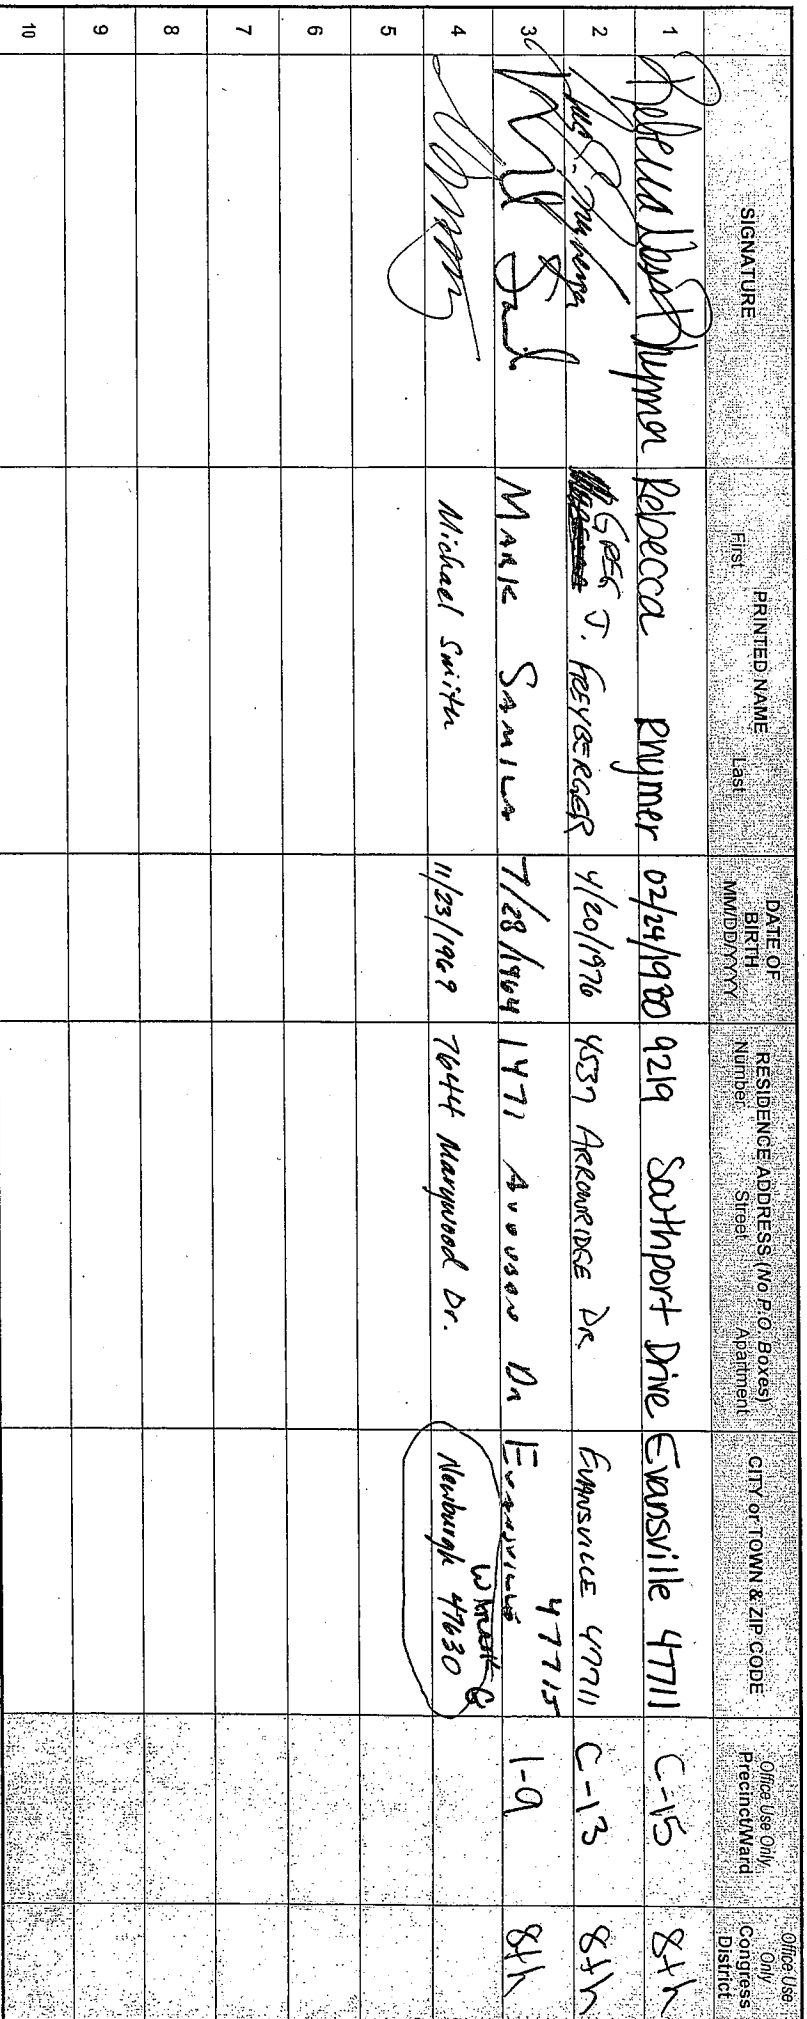 SIGNATURE
PRINTED NAME
First Last
DATE OF
BIRTH
MM/DD/YYYY
RESIDENCE ADDRESS (No P.O. Boxes)
Number Street Apartment
CITY or TOWN & ZIP CODE
Office Use Only
Precinct/Ward
Office Use
Only
Congress
District
1 Rebecca Rhymer 02/24/1980 9219 Southport Drive Evansville 47711 C-15 8th
2 GREG J. FREYBERGER 4/20/1976 4537 ARROWRIDGE DR EVANSVILLE 47711 C-13 8th
3 Mark 7/28/1964 1471 Dr Evansville 47715 1-9 8th
4 Michael Smith 11/23/1969 7644 Marywood Dr. Newburgh 47630
5
6
7
8
9
10